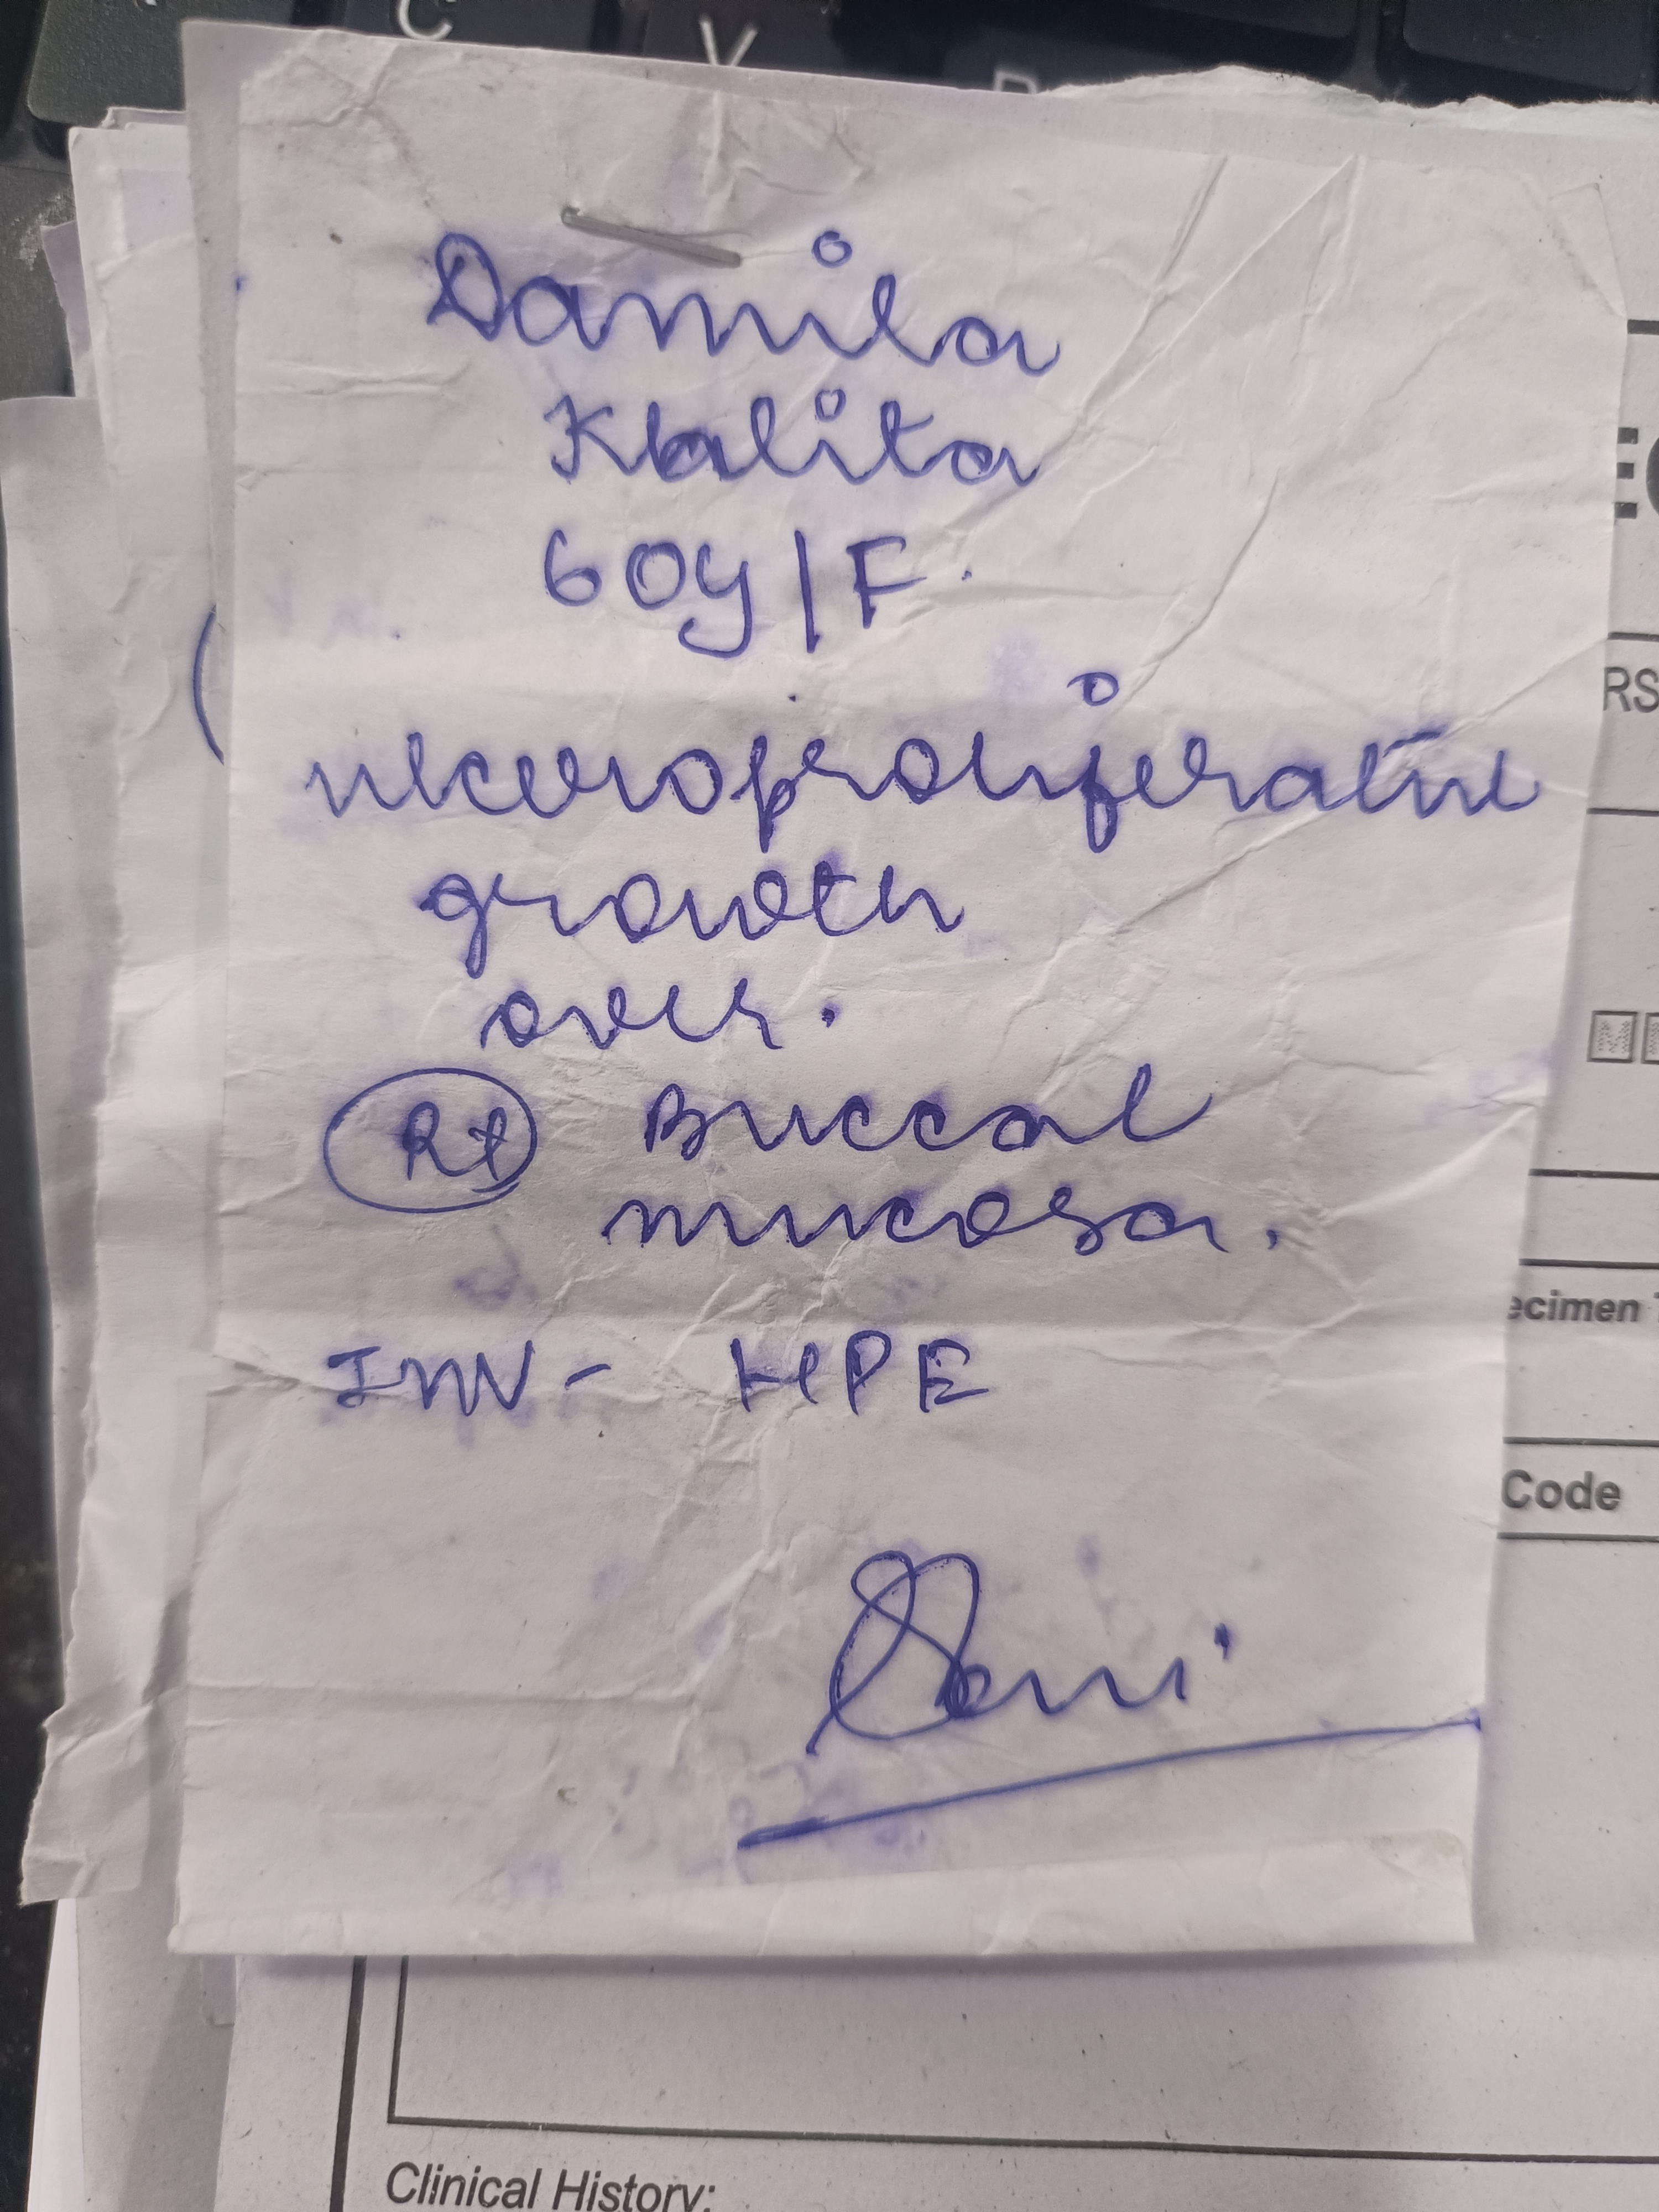 C
V
Damila
Kalita
60y/F.
ulceroproliferative
growth
over.
Rt Buccal
mucosa.
INV - HPE
RS
ecimen
Code
Clinical History: